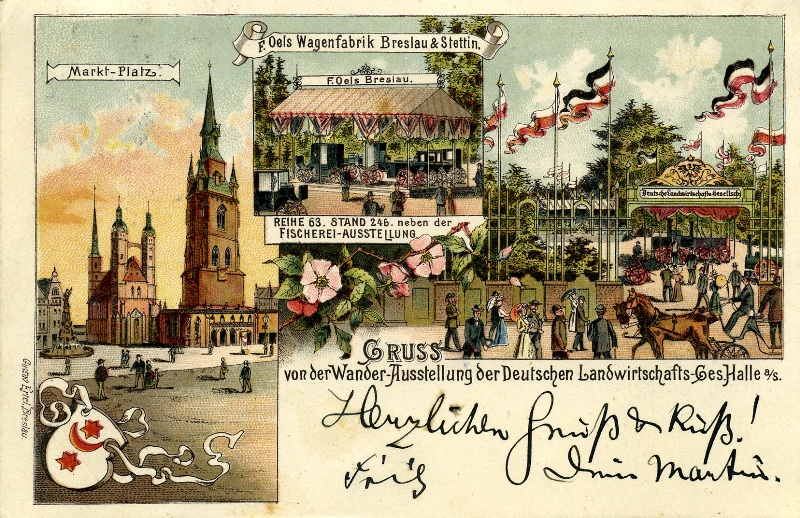 F. Oels Wagenfabrik Breslau & Stettin.
Markt-Platz.
F. Oels Breslau.
REIHE 63. STAND 246. neben der
FISCHEREI-AUSSTELLUNG.
Deutsche Landwirtschafts-Gesellsch
GRUSS
von der Wander-Ausstellung der Deutschen Landwirtschafts-Ges. Halle a/S.
Herzlichen Gruß & Kuß!
Dein Martin.